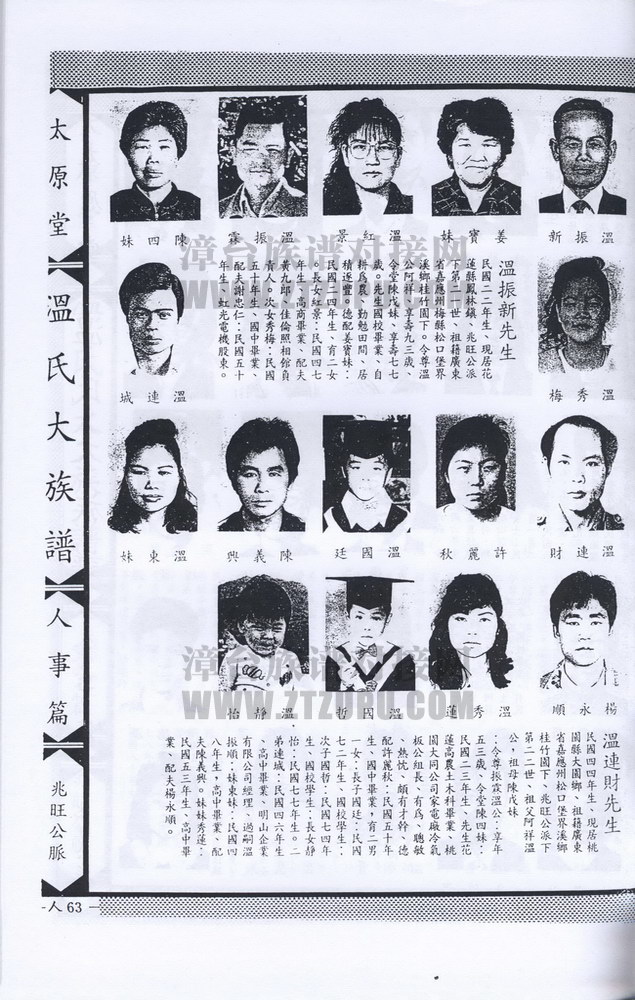 太原堂
溫氏大族譜
人事篇
兆旺公脈
溫振新
姜寶妹
溫紅景
溫振霖
陳四妹
溫秀梅
溫振新先生
民國二二年生、現居花
蓮縣鳳林鎮、兆旺公派
下第二二世、祖籍廣東
省嘉應州梅縣松口堡界
溪鄉桂竹園下。令尊溫
公阿祥、享壽九三歲、
令堂陳戊妹、享壽七七
歲。先生國校畢業、自
耕為農、勤勉田間、居
積遂豐。德配姜寶妹:
民國二四年生、育二女
。長女紅景:民國四七
年生、高商畢業、配夫
黃九郎、佳倫照相館負
責人。次女秀梅:民國
五十年生、國中畢業、
配夫謝忠仁:民國五十
年生、虹光電機股東。
溫連城
溫連財
許麗秋
溫國廷
陳義興
溫東妹
楊永順
溫秀蓮
溫國哲
溫靜怡
溫連財先生
民國四四年生、現居桃
園縣大園鄉、祖籍廣東
省嘉應州松口堡界溪鄉
桂竹園下、兆旺公派下
第二二世、祖父阿祥溫
公,祖母陳戊妹
:令尊振霖溫公:享年
五三歲、令堂陳四妹:
民國二三年生、先生花
蓮高農土木科畢業、桃
園大同公司家電廠冷氣
板公組長、有為、聰敏
、熱忱、頗有才幹、德
配許麗秋:民國五十年
生、國中畢業,育二男
一女:長子國廷:民國
七二年生、國校學生:
次子國哲:民國七四年
生、國校學生:長女靜
怡:民國七七年生。二
弟連城:民國四六年生
、高中畢業、明山企業
有限公司經理、過嗣溫
振順:妹東妹:民國四
八年生,高中畢業、配
夫陳義興。妹妹秀蓮:
民國五三年生、高中畢
業、配夫楊永順。
人 63
漳台族谱对接网
WWW.ZTZUPU.COM
漳台族谱对接网
WWW.ZTZUPU.COM